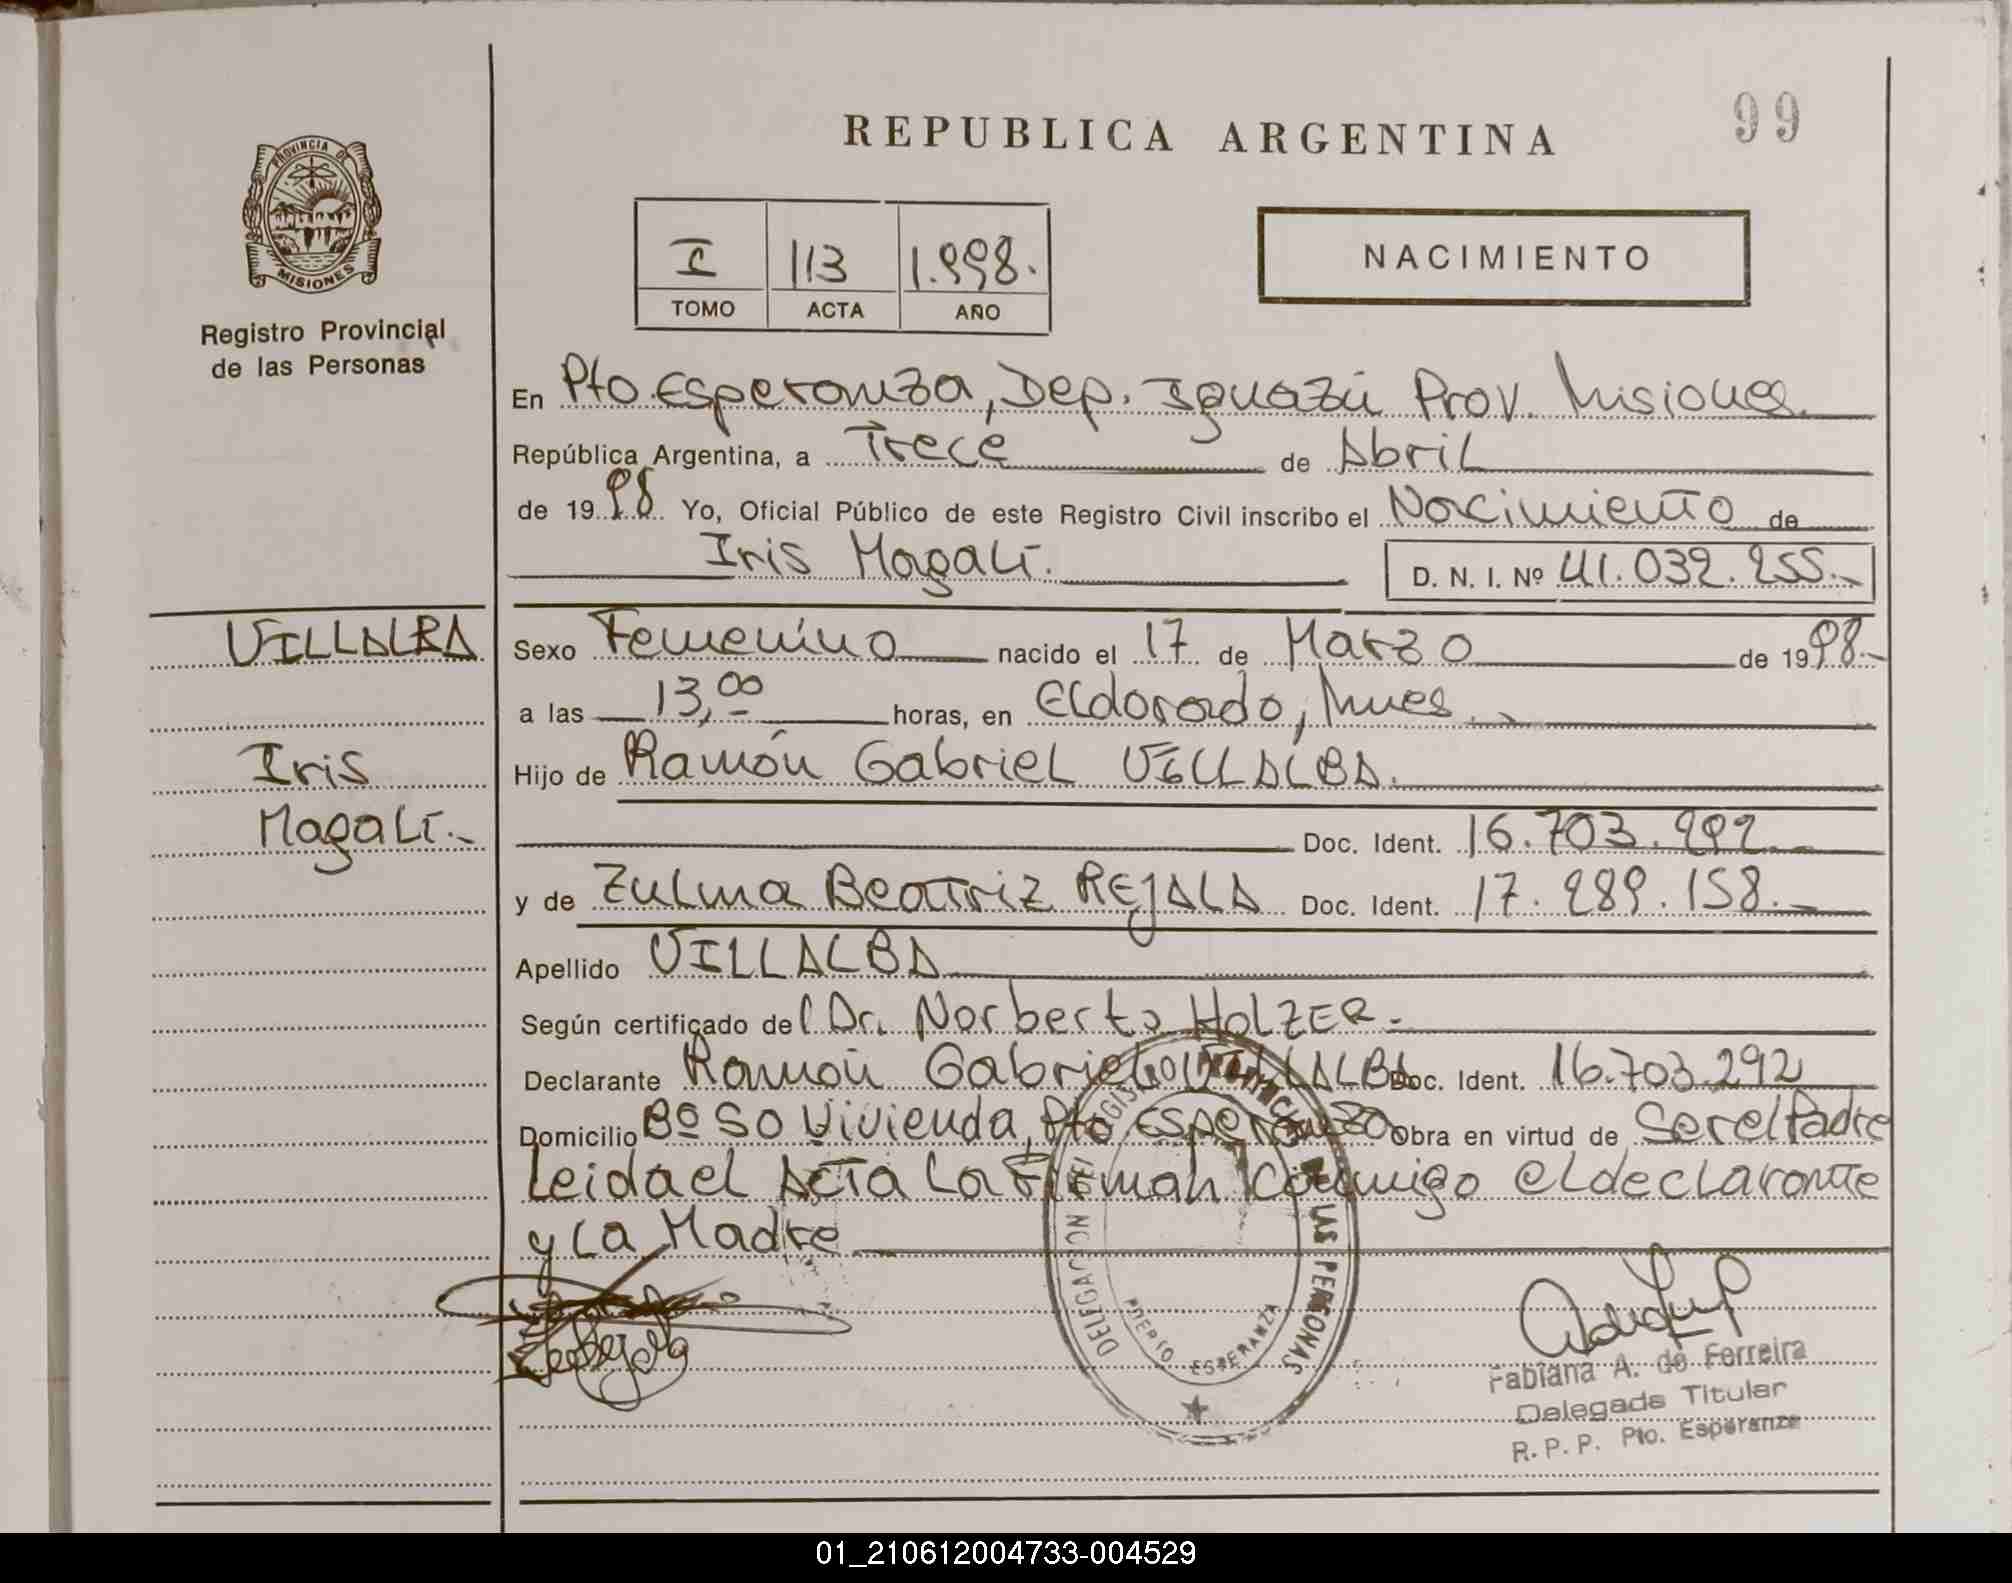 REPUBLICA ARGENTINA
99
PROVINCIA DE
MISIONES
Registro Provincial
de las Personas
I 113 1.998.
TOMO ACTA AÑO
NACIMIENTO
En Pto. Esperanza, Dep. Iguazú Prov. Misiones.
República Argentina, a Trece de Abril
de 1998. Yo, Oficial Público de este Registro Civil inscribo el Nacimiento de
Iris Magalí.
D. N. I. Nº 41.032.255.-
VILLALBA
Iris
Magalí.-
Sexo Femenino nacido el 17 de Marzo de 1998.-
a las 13,00 horas, en Eldorado, Mnes.
Hijo de Ramón Gabriel VILLALBA.
Doc. Ident. 16.703.292.-
y de Zulma Beatriz REJALA Doc. Ident. 17.289.158.-
Apellido VILLALBA
Según certificado del Dr. Norberto HOLZER.-
Declarante Ramón Gabriel VILLALBA Doc. Ident. 16.703.292
Domicilio Bº 50 Vivienda, Pto Esperanza Obra en virtud de Ser el Padre
Leida el Acta La Firman Conmigo el declarante
y La Madre
DELEGACION DEL REGISTRO PROVINCIAL DE LAS PERSONAS
PUERTO ESPERANZA
Fabiana A. de Ferreira
Delegada Titular
R. P. P. Pto. Esperanza
01_210612004733-004529